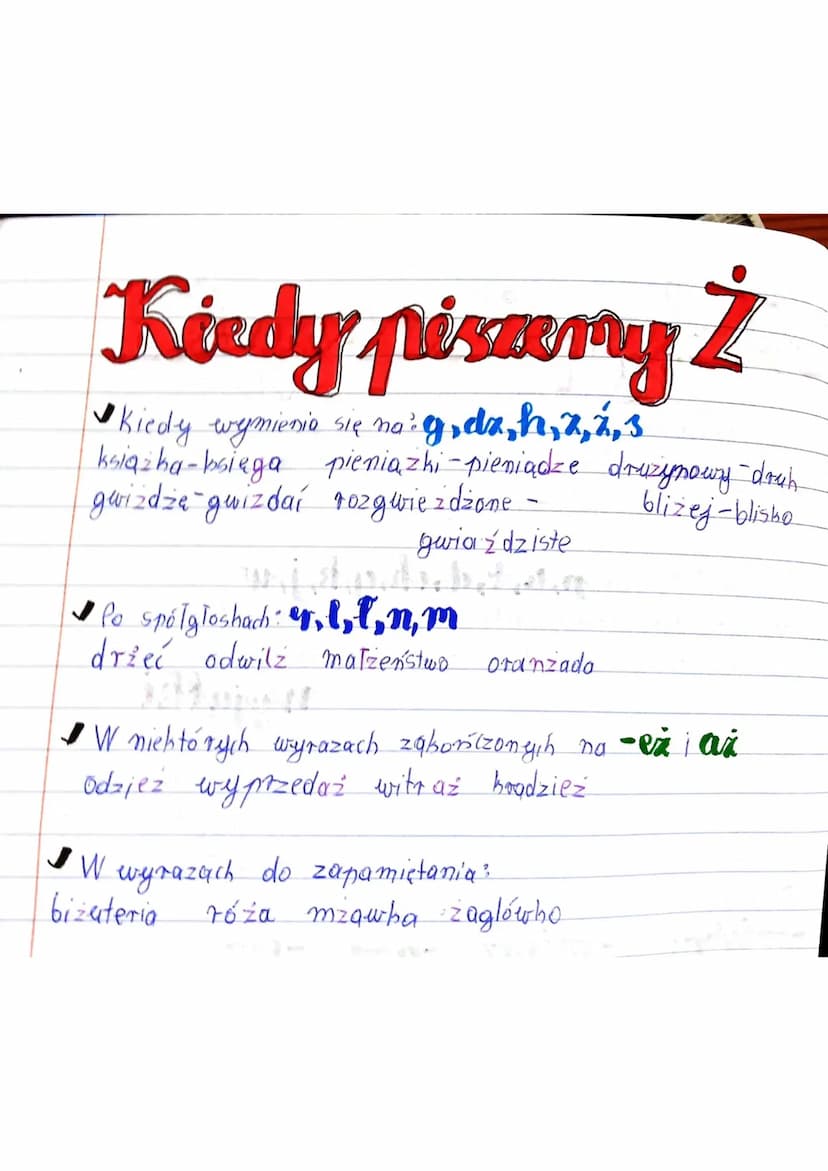 Kiedy piszemy Ż
Kiedy wymienia się na: g, dz, h, z, ź, s
książka-księga pieniążki-pieniądze drużynowy-druh
gwiżdżę-gwizdać rozgwieżdżone - bliżej-blisko
gwiaździste
Po spółgłoskach: r, l, ł, n, m
drżeć odwilż małżeństwo oranżada
W niektórych wyrazach zakończonych na -eż i aż
odzież wyprzedaż witraż kradzież
W wyrazach do zapamiętania:
biżuteria róża mżawka żaglówka